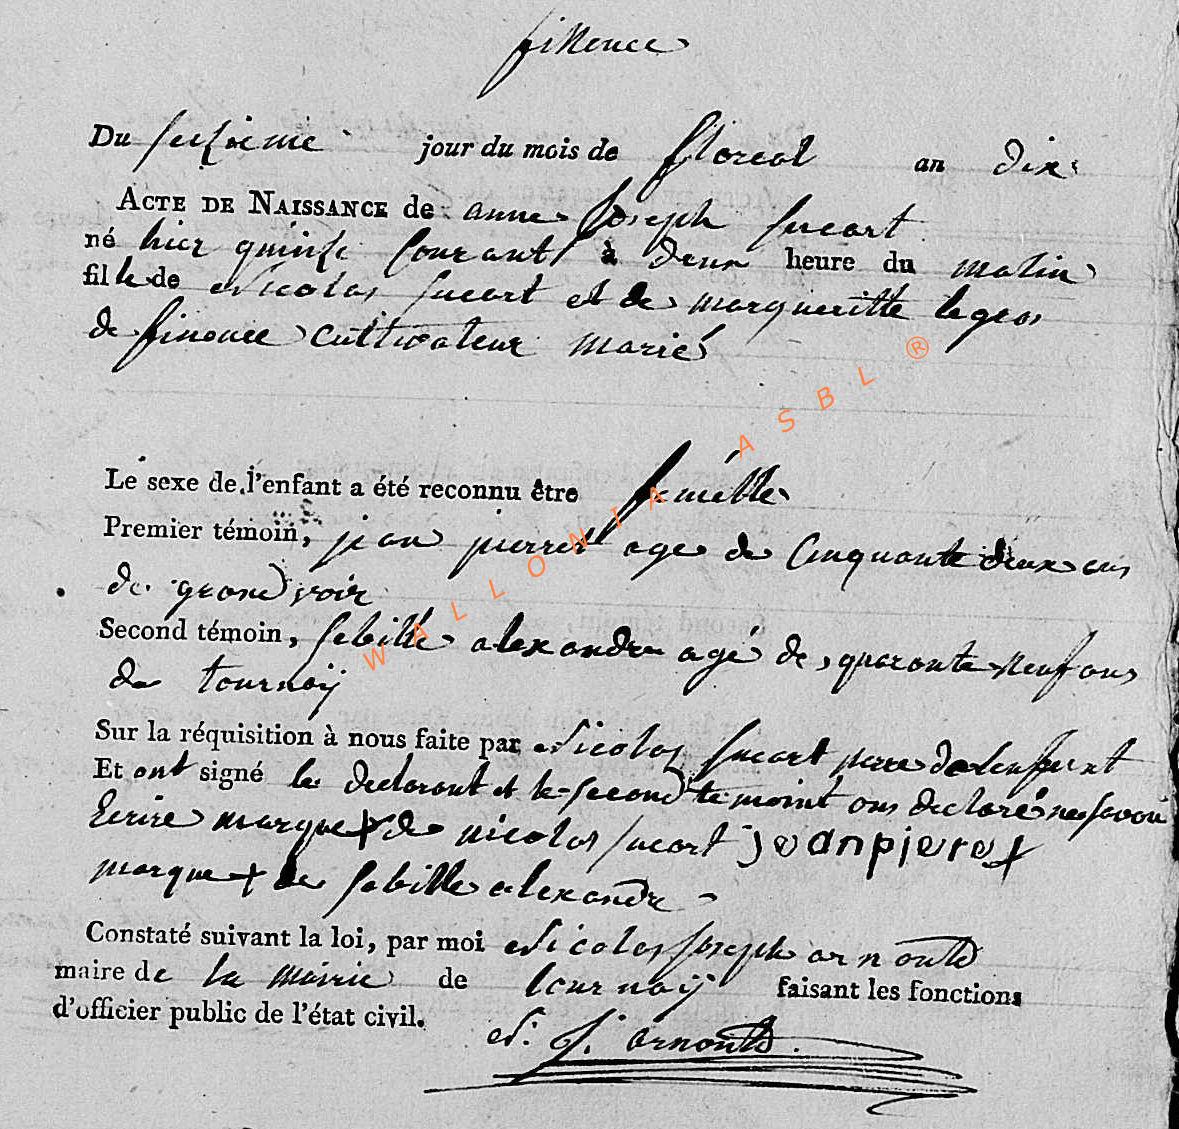 finence
Du seizieme jour du mois de floreal an dix
ACTE DE NAISSANCE de anne Joseph Sucart
né hier quinze Courant à deux heure du matin
fille de Nicolas Sucart et de margueritte legros
de finence Cultivateur marié
Le sexe de l'enfant a été reconnu être femélle
Premier témoin, jean pierret age de Cinquante deux ans
de grand voir
Second témoin, Sebille alexandre agé de quarante neuf ans
de tournaÿ
Sur la réquisition à nous faite par Nicolas Sucart pere de lenfant
Et ont signé le declarant et le second temoint ons declaré ne savoir
Ecrire marque + de nicolas Sucart jeanpiere +
marque + de Sebille alexandre
Constaté suivant la loi, par moi Nicolas Joseph arnould
maire de la mairie de tournaÿ faisant les fonctions
d'officier public de l'état civil. N. J. arnould.
WALLONIA ASBL ®